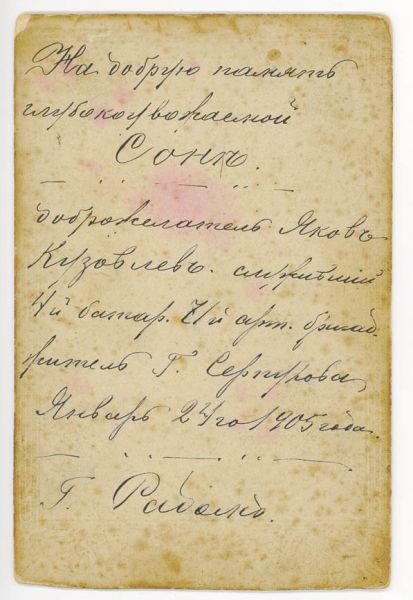 На добрую память
глубокоуважаемой
Сонѣ.
доброжелатель Яковъ
Кузовлевъ. служившій
4й батар. 4й арт. бригад.
житель Г. Серпухова,
Январь 24го 1905 года.
Г.